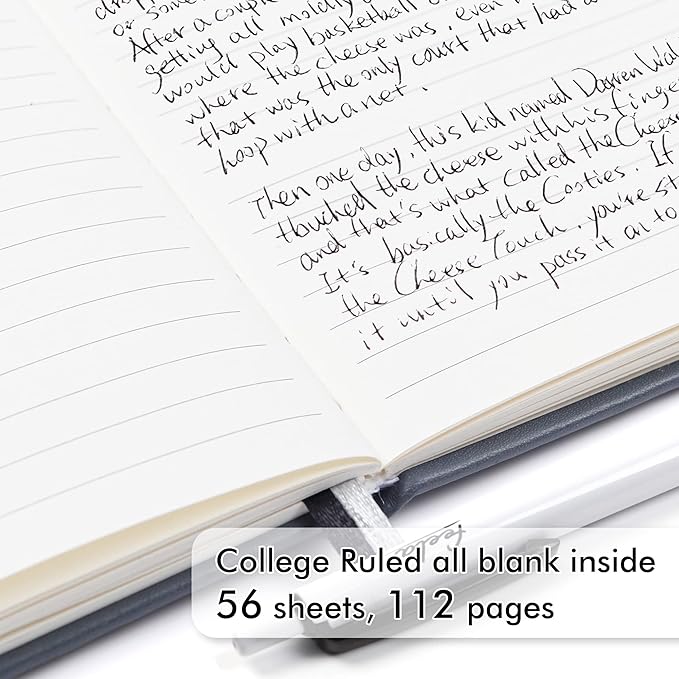 or some
After a couple
getting all moldy a
would play basketball o
where the cheese was, even
that was the only court that had a
hoop with a net.
Then one day, this kid named Darren Wal
touched the cheese with his finger
and that's what called the Cheese
It's basically the Cooties. If
the Cheese Touch, you're st
it until you pass it on to
feela
College Ruled all blank inside
56 sheets, 112 pages